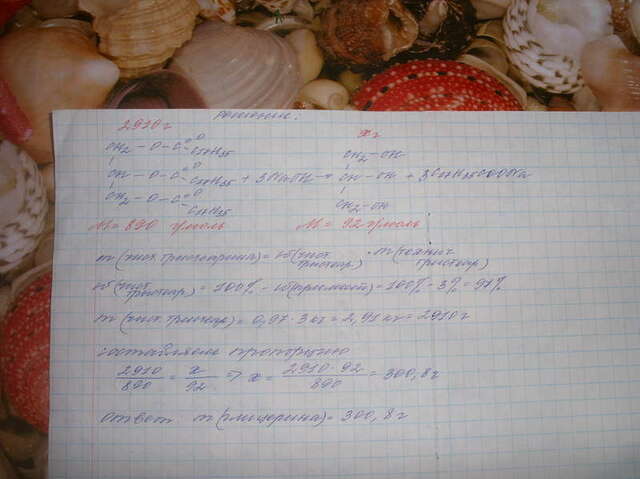 Решение:
2910 г
x г
CH2 - O - C =O - C17H35
CH2 - OH
CH - O - C =O - C17H35 + 3NaOH → CH - OH + 3C17H35COONa
CH2 - O - C =O - C17H35
CH2 - OH
M = 890 г/моль M = 92 г/моль
m(чист. тристеарина) = w(чист тристеар) · m(технич тристеар)
w(чист тристеар) = 100% - w(примесей) = 100% - 3% = 97%
m(чист. тристеар) = 0,97 · 3 кг = 2,91 кг = 2910 г
составляем пропорцию
2910/890 = x/92 => x = 2910 · 92/890 = 300,8 г
ответ m(глицерина) = 300,8 г